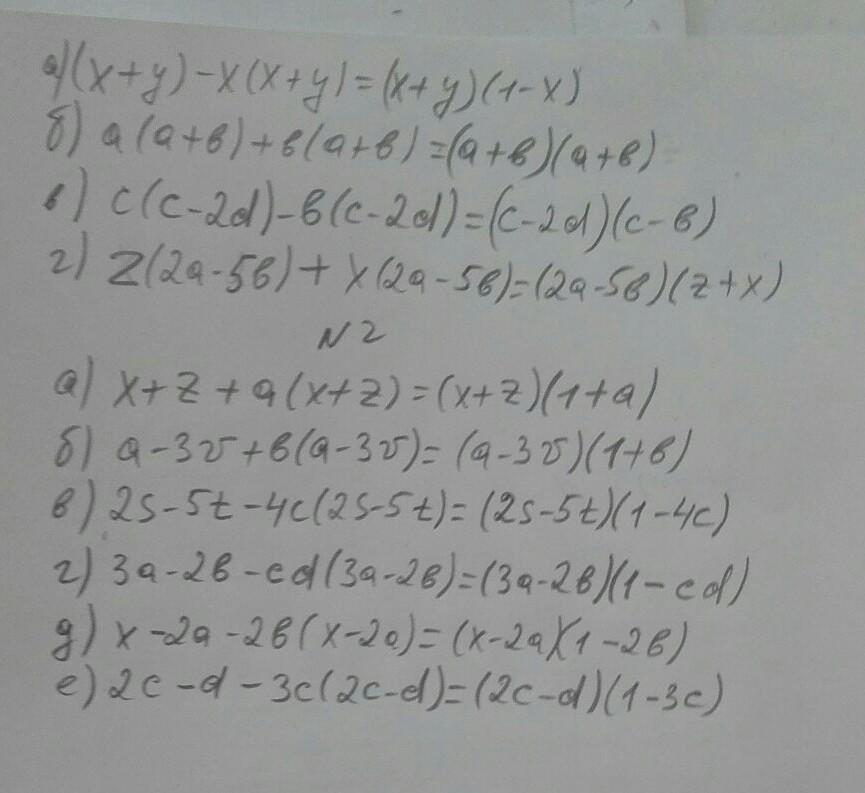 а) (x+y)-x(x+y)=(x+y)(1-x)
б) a(a+в)+в(a+в)=(a+в)(a+в)
в) c(c-2d)-в(c-2d)=(c-2d)(c-в)
г) z(2a-5в)+x(2a-5в)=(2a-5в)(z+x)
N2
а) x+z+a(x+z)=(x+z)(1+a)
б) a-3v+в(a-3v)=(a-3v)(1+в)
в) 2s-5t-4c(2s-5t)=(2s-5t)(1-4c)
г) 3a-2в-cd(3a-2в)=(3a-2в)(1-cd)
д) x-2a-2в(x-2a)=(x-2a)(1-2в)
е) 2c-d-3c(2c-d)=(2c-d)(1-3c)